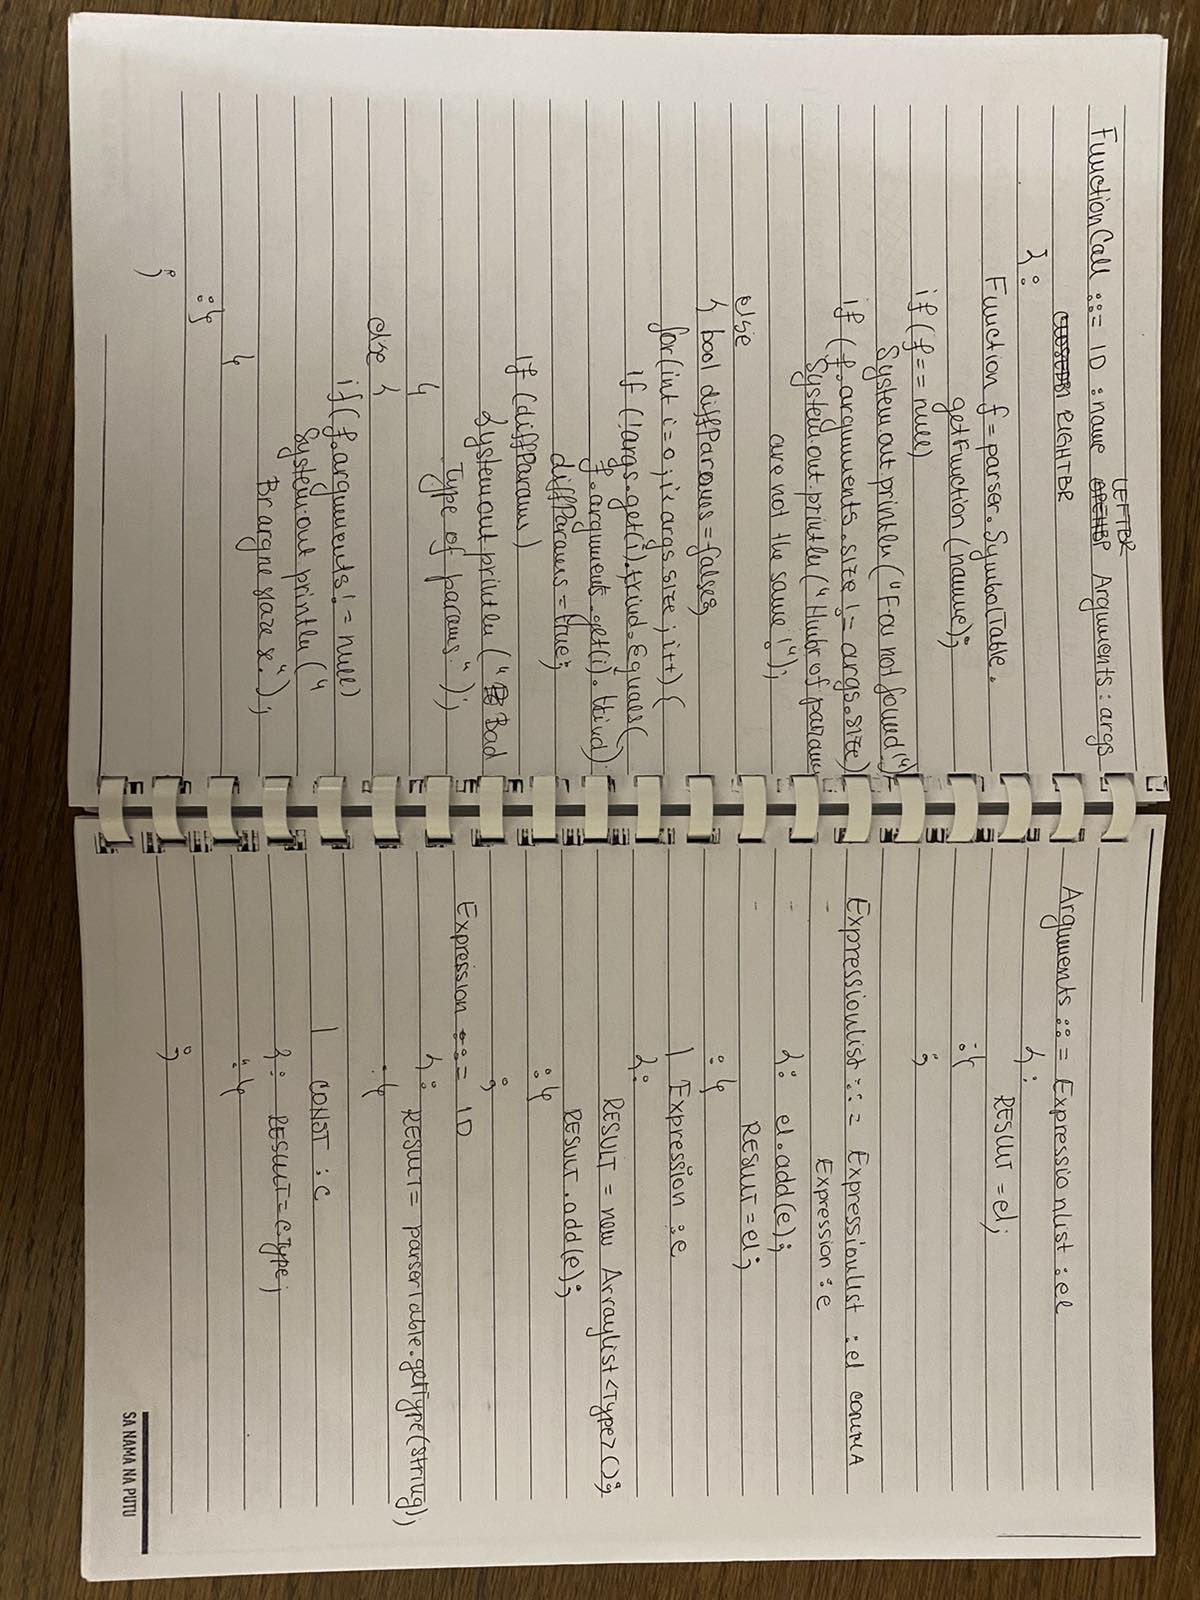 LEFTBR
FunctionCall ::= ID :name Arguments : args
RIGHTBR
{:
Function f = parser. SymbolTable.
getFunction (name);
if (f == null)
System.out.println ("F-a not found!");
if (f.arguments.size != args.size)
System.out.println ("Number of param
are not the same!");
else
{ bool diffParams = false;
for(int i=0; i< args.size; i++) {
if (!args.get(i).kind.Equals(
f.arguments.get(i).kind)
diffParams = true;
if (diffParams)
System.out.println ("Bad
Type of params.");
}
else {
if (f.arguments != null)
System.out.println ("
Br argne slaze x.");
}
:}
;
Arguments ::= ExpressionList : el
{:
RESULT = el;
:}
;
ExpressionList ::= ExpressionList : el COMMA
Expression : e
{: el.add(e);
RESULT = el;
:}
| Expression : e
{:
RESULT = new ArrayList<Type>();
RESULT.add(e);
:}
;
Expression ::= ID
{:
RESULT = parser.table.getType(string);
:}
| CONST : c
{: RESULT = c.Type;
:}
;
SA NAMA NA PUTU